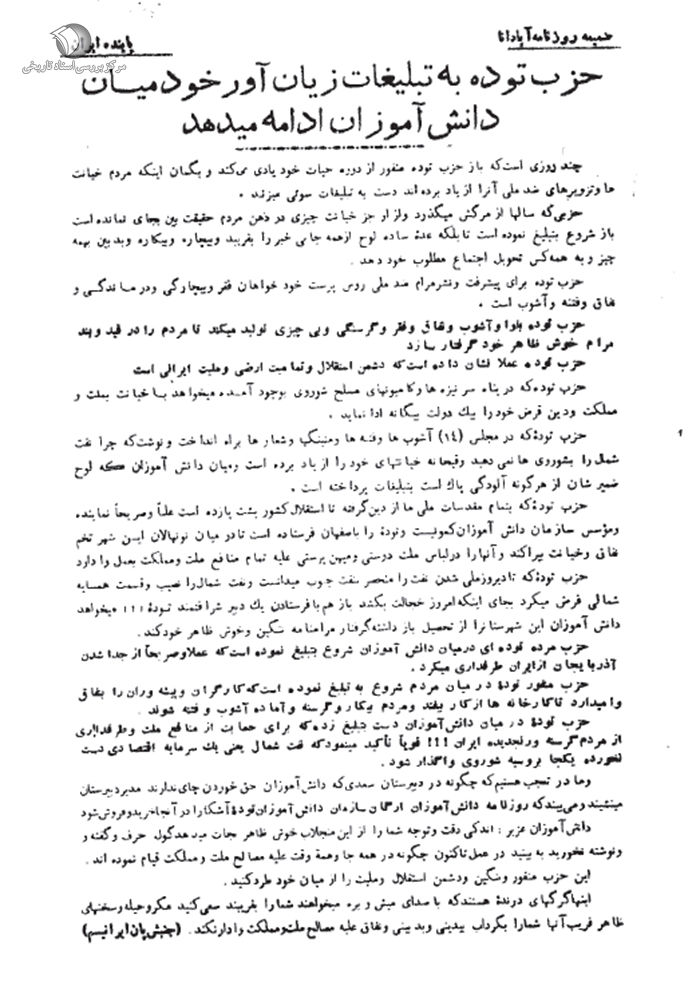 ضمیمه روزنامه آپادانا
پاینده ایران
مرکز بررسی اسناد تاریخی
حزب توده به تبلیغات زیان آور خود میان
دانش آموزان ادامه میدهد
چند روزی است که باز حزب توده منفور از دوره حیات خود یادی می کند و بگمان اینکه مردم خیانت
ها و تزویرهای ضد ملی آنرا از یاد برده اند دست به تبلیغات سوئی میزند
حزبی که سالها از مرگش میگذرد و از او جز خیانت چیزی در ذهن مردم حقیقت بین بجای نمانده است
باز شروع بتبلیغ نموده است تا بلکه عدهٔ ساده لوح از همه جا بی خبر را بفریبد و بیچاره و بیکاره و بدبین بهمه
چیز و به همه کس تحویل اجتماع مطلوب خود دهد .
حزب توده برای پیشرفت و نشر مرام ضد ملی روس پرست خود خواهان فقر و بیچارگی و درماندگی و
نفاق و فتنه و آشوب است .
حزب توده بلوا و آشوب و نفاق و فقر و گرسنگی و بی چیزی تولید میکند تا مردم را در قید و بند
مرام خوش ظاهر خود گرفتار سازد
حزب توده عملا نشان داده است که دشمن استقلال و تمامیت ارضی و ملیت ایرانی است
حزب توده که در پناه سر نیزه ها و کامیونهای مسلح شوروی بوجود آمده میخواهد با خیانت بملت و
مملکت و دین قرض خود را بیک دولت بیگانه ادا نماید .
حزب تودهٔ که در مجلس (۱۴) آشوب ها و فتنه ها و متینگها و شعار ها براه انداخت و نوشت که چرا نفت
شمال را بشوروی ها نمی دهید وقیحانه خیانتهای خود را از یاد برده است و میان دانش آموزان که لوح
ضمیر شان از هرگونه آلودگی پاک است بتبلیغات پرداخته است .
حزب تودهٔ که بتمام مقدسات ملی ما از دین گرفته تا استقلال کشور پشت پا زده است علناً و صریحاً نماینده
و مؤسس سازمان دانش آموزان کمونیست و توده را باصفهان فرستاده است تا در میان نونهالان این شهر تخم
نفاق و خیانت بپراکند و آنها را در لباس ملت دوستی و میهن پرستی علیه تمام منافع ملت و مملکت بعمل وا دارد
حزب تودهٔ که تا دیروز ملی شدن نفت را منحصر بنفت جنوب میدانست و نفت شمال را نصیب و قسمت همسایه
شمالی فرض میکرد بجای اینکه امروز خجالت بکشد باز هم با فرستادن یک دبیر شرافتمند تودهٔ !!! میخواهد
دانش آموزان این شهرستان را از تحصیل باز داشته گرفتار مرامنامه ننگین و خوش ظاهر خود کند.
حزب مرده توده ای در میان دانش آموزان شروع بتبلیغ نموده است که عملا و صریحاً از جدا شدن
آذربایجان از ایران طرفداری میکرد .
حزب منفور تودهٔ در میان مردم شروع به تبلیغ نموده است که کارگران و پیشه وران را بنفاق
وا میدارد تا کارخانه ها از کار بیفتد و مردم بیکار و گرسنه و آماده آشوب و فتنه شوند .
حزب تودهٔ در میان دانش آموزان دست بتبلیغ زده که برای حمایت از منافع ملت و طرفداری
از مردم گرسنه و رنجدیده ایران !!! قویاً تأکید مینمود که نفت شمال یعنی یک سرمایه اقتصادی دست
نخورده یکجا بروسیه شوروی واگذار شود .
و ما در تعجب هستیم که چگونه در دبیرستان سعدی که دانش آموزان حق خوردن چای ندارند مدیر دبیرستان
مینشیند و می بیند که روزنامه دانش آموزان ارگان سازمان دانش آموزان تودهٔ آشکارا در آنجا خرید و فروش شود
دانش آموزان عزیز : اندکی دقت و توجه شما را از این منجلاب خوش ظاهر نجات میدهد گول حرف و گفته و
و نوشته نخورید به بینید در عمل تاکنون چگونه در همه جا و همهٔ وقت علیه مصالح ملت و مملکت قیام نموده اند .
این حزب منفور و ننگین و دشمن استقلال و ملیت را از میان خود طرد کنید .
اینها گرگهای درندهٔ هستند که با صدای میش و بره میخواهند شما را بفریبند سعی کنید مکر و حیله و سخنهای
ظاهر فریب آنها شما را بگرداب بیدینی و بد بینی و نفاق علیه مصالح ملت و مملکت وا دار نکند . (جنبش پان ایرانیسم)